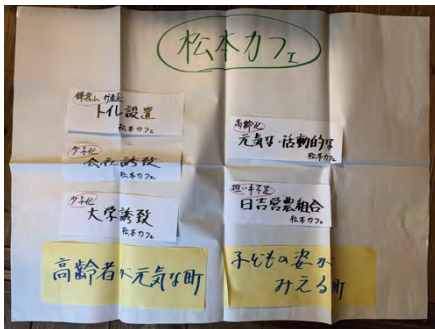 松本カフェ
トイレ設置
松本カフェ
少子化
会社誘致
松本カフェ
少子化
大学誘致
松本カフェ
高齢化
元気な・活動的な
松本カフェ
担い手不足
日吉営農組合
松本カフェ
高齢者が元気な町
子どもの姿が
みえる町